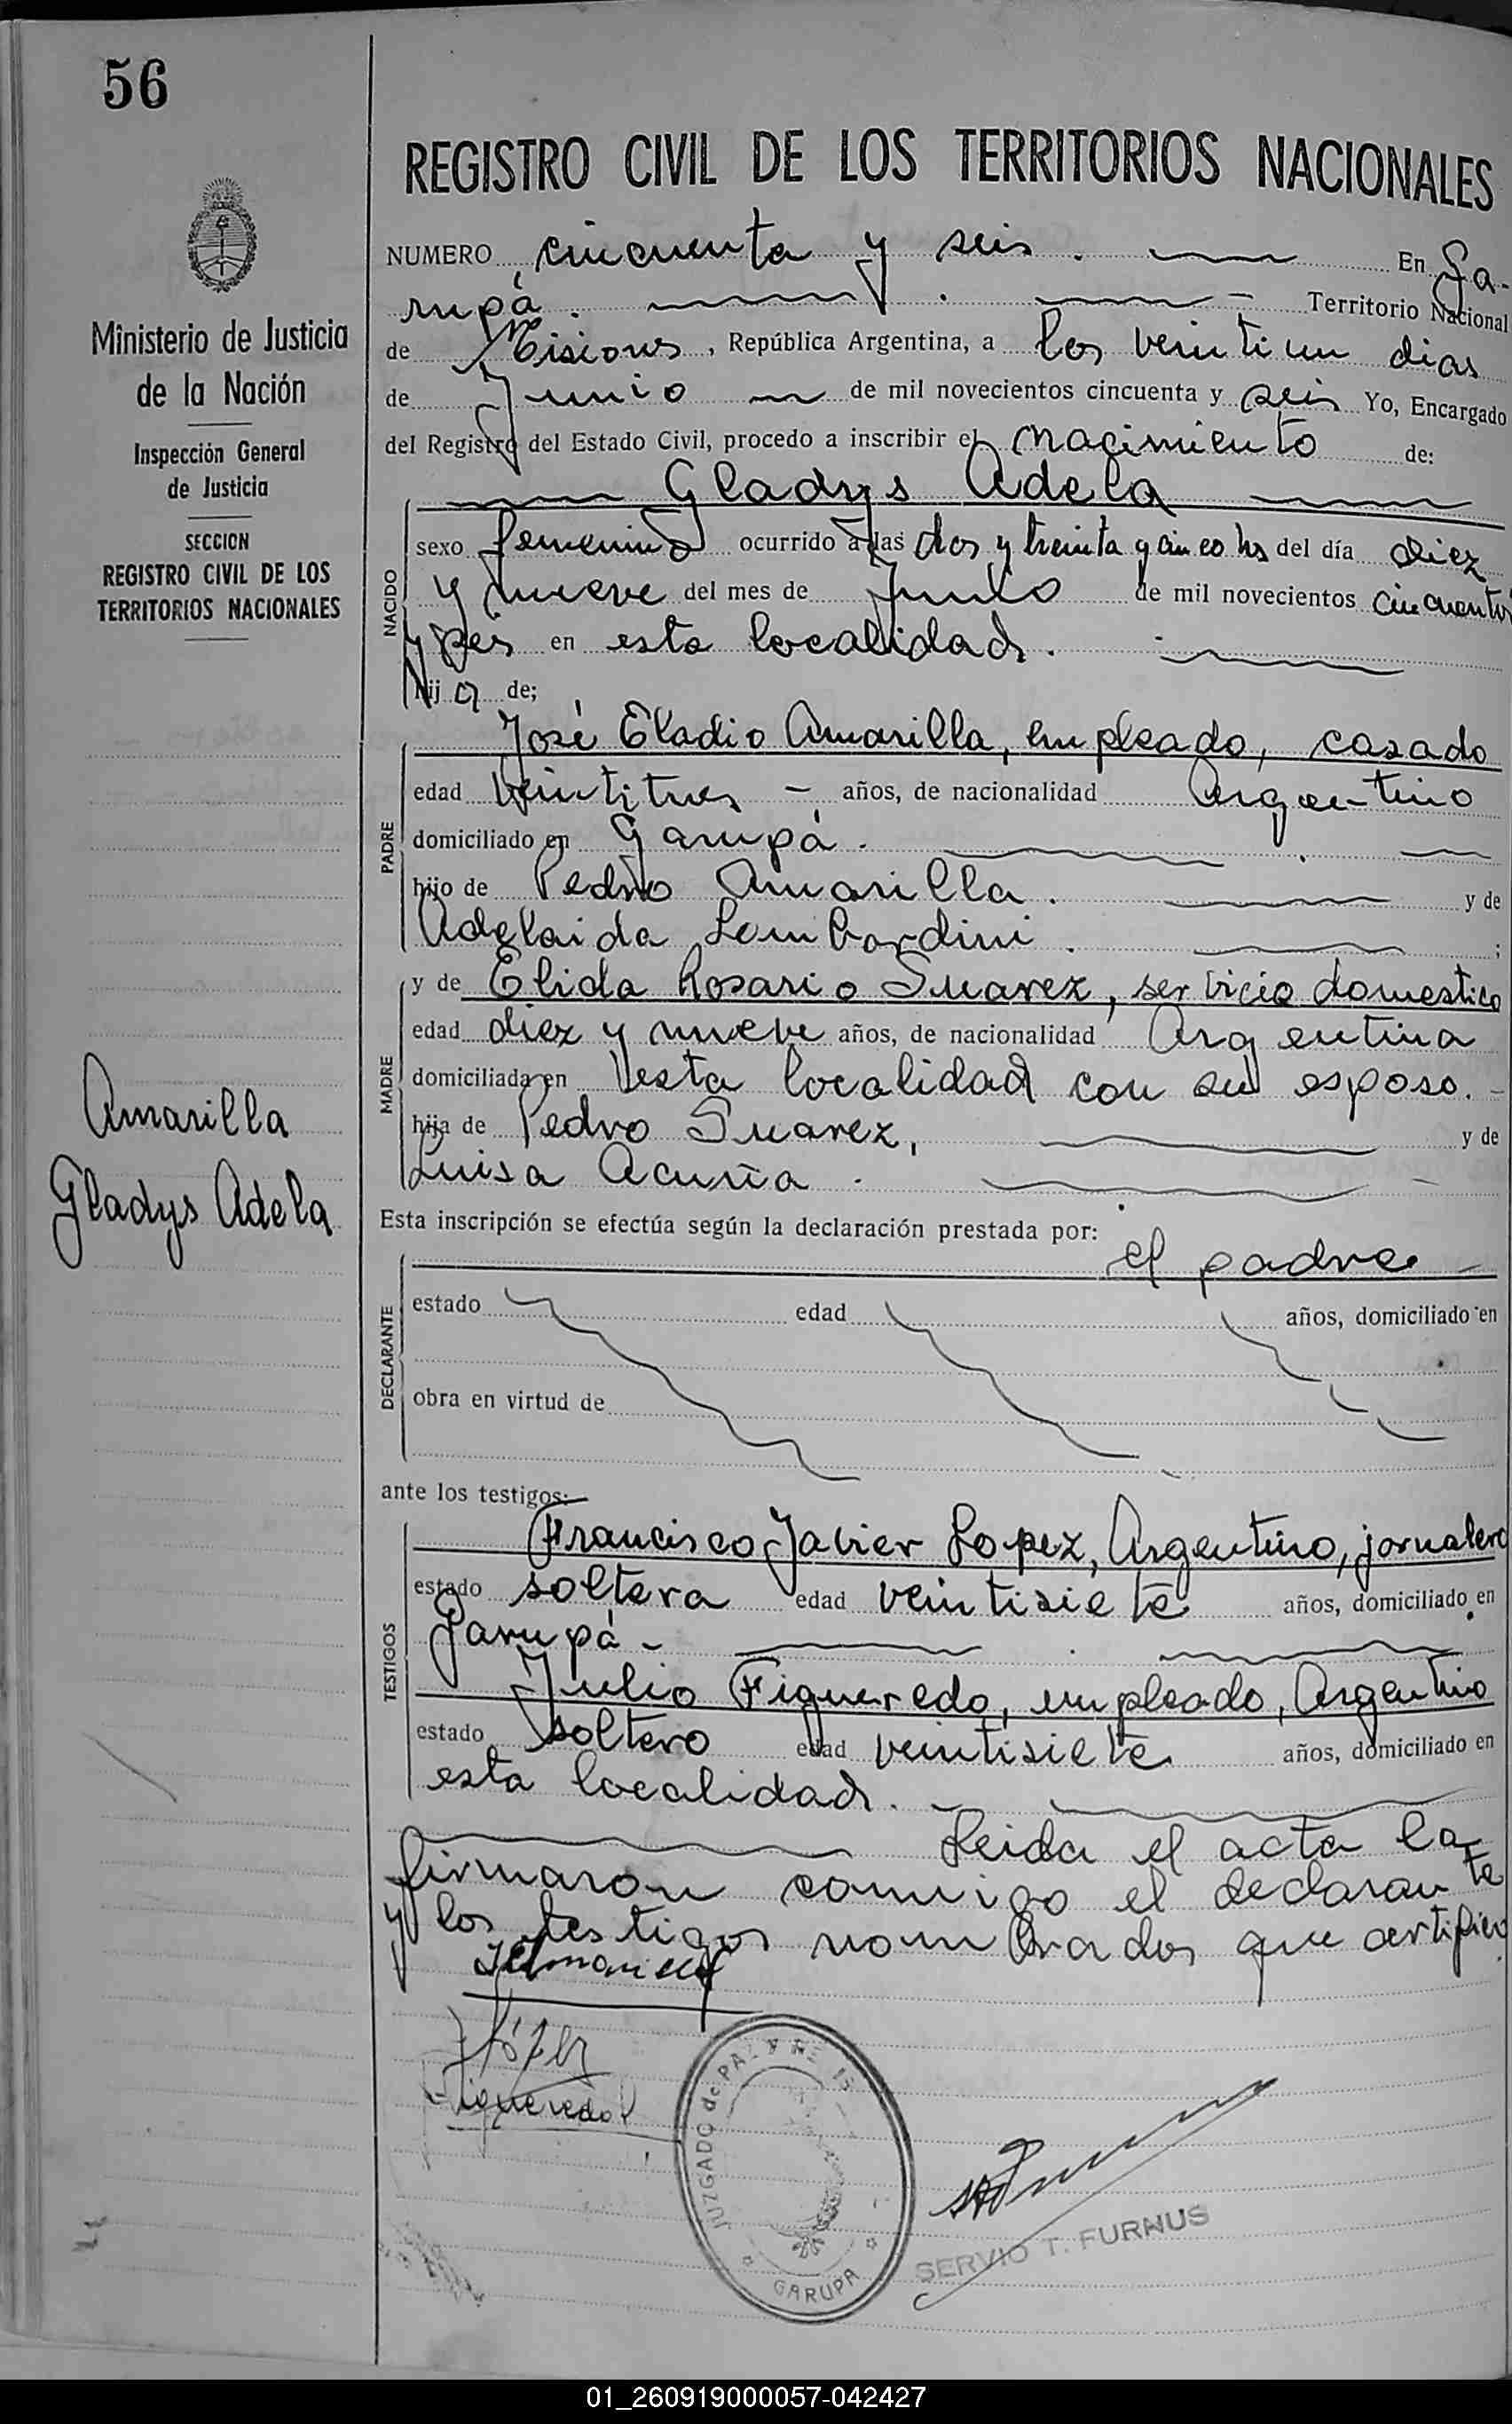 56
REGISTRO CIVIL DE LOS TERRITORIOS NACIONALES
Ministerio de Justicia
de la Nación
Inspección General
de Justicia
SECCION
REGISTRO CIVIL DE LOS
TERRITORIOS NACIONALES
Amarilla
Gladys Adela
NUMERO cincuenta y seis. En Ga-
rupá. Territorio Nacional
de Misiones, República Argentina, a los veintiun dias
de Junio de mil novecientos cincuenta y seis Yo, Encargado
del Registro del Estado Civil, procedo a inscribir el nacimiento de:
Gladys Adela
NACIDO
sexo femenino ocurrido a las dos y treinta y cinco hs del día diez
y nueve del mes de Junio de mil novecientos cincuenta
y seis en esta localidad.
hija de;
José Eladio Amarilla, empleado, casado
PADRE
edad veintitres años, de nacionalidad Argentino
domiciliado en Garupá.
hijo de Pedro Amarilla. y de
Adelaida Lombardini. ;
MADRE
y de Elida Rosario Suarez, servicio domestico
edad diez y nueve años, de nacionalidad Argentina
domiciliada en esta localidad con su esposo.
hija de Pedro Suarez, y de
Luisa Acuña.
Esta inscripción se efectúa según la declaración prestada por:
el padre
DECLARANTE
estado edad años, domiciliado en
obra en virtud de
ante los testigos:
TESTIGOS
Francisco Javier Lopez, Argentino, jornalero
estado soltera edad veintisiete años, domiciliado en
Garupá-
Julio Figueredo, empleado, Argentino
estado soltero edad veintisiete años, domiciliado en
esta localidad.
Leida el acta la
firmaron conmigo el declarante
y los testigos nombrados que certifico.
JEAmarilla
López
Figueredo
JUZGADO de PAZ
GARUPA
SERVIO T. FURNUS
01_260919000057-042427